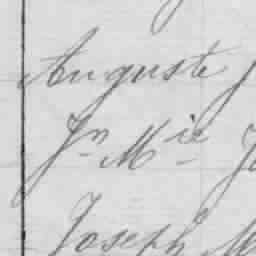 Auguste
Jn Mie
Joseph